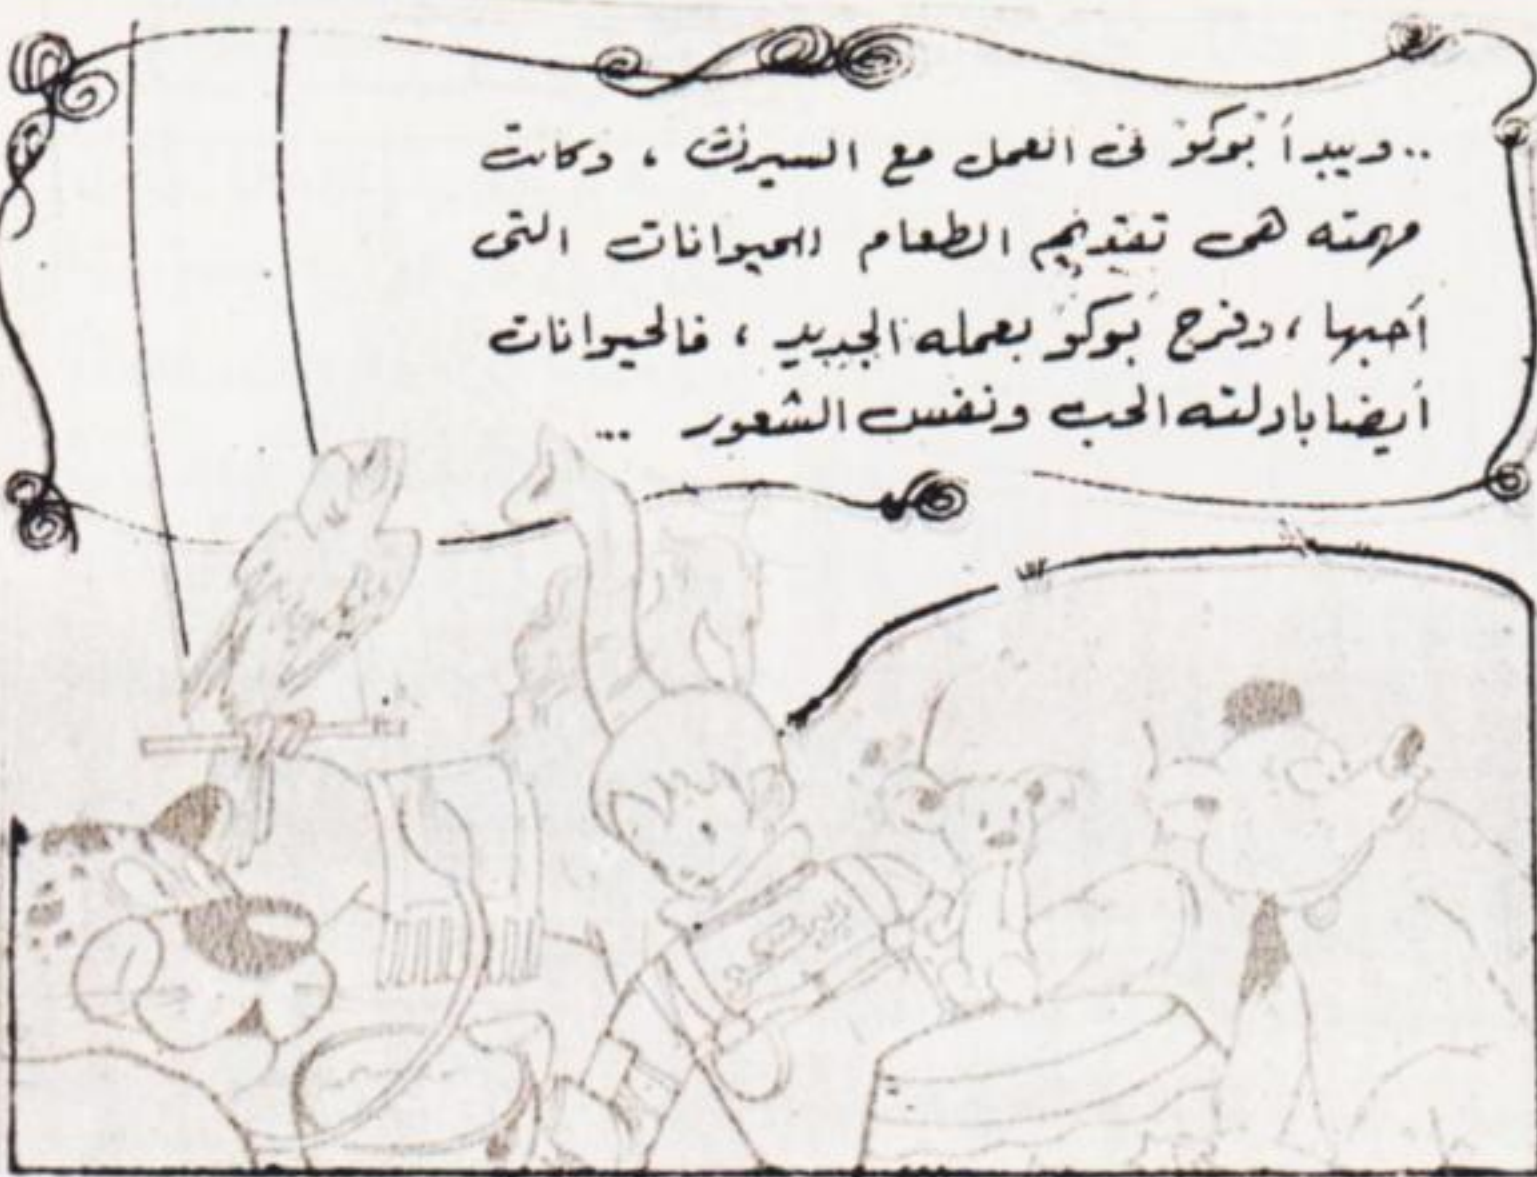 .. ويبدأ بُوكو فى العمل مع السيرك ، وكانت
مهمته هى تقديم الطعام للحيوانات التى
أحبها ، وفرح بُوكو بعمله الجديد ، فالحيوانات
أيضا بادلته الحب ونفس الشعور ...